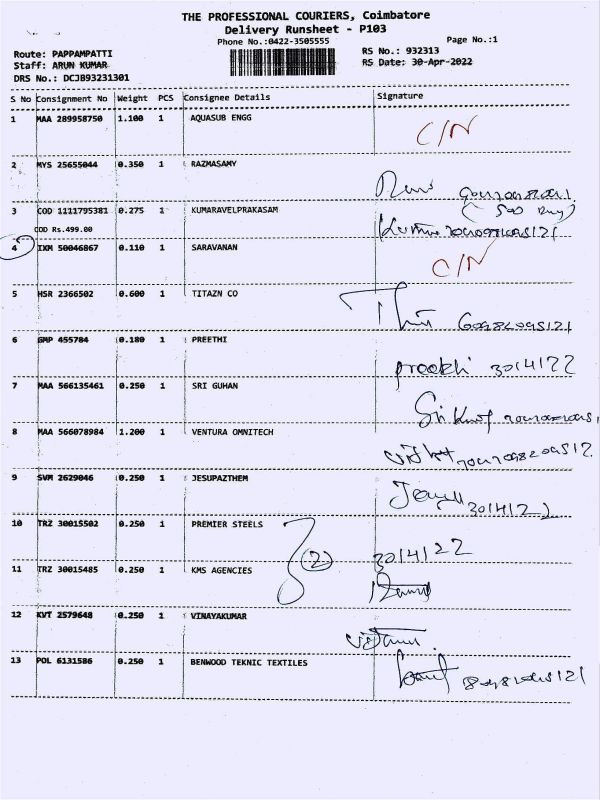 THE PROFESSIONAL COURIERS, Coimbatore
Delivery Runsheet - P103
Phone No.:0422-3505555 Page No.:1
Route: PAPPAMPATTI RS No.: 932313
Staff: ARUN KUMAR RS Date: 30-Apr-2022
DRS No.: DCJB93231301
S No Consignment No Weight PCS Consignee Details Signature
1 MAA 289958750 1.100 1 AQUASUB ENGG C/N
2 MYS 25655044 0.350 1 RAZMASAMY
3 COD 1111795381 0.275 1 KUMARAVELPRAKASAM
COD Rs.499.00
4 IXM 50046867 0.110 1 SARAVANAN C/N
5 HSR 2366502 0.600 1 TITAZN CO
6 GMP 455784 0.180 1 PREETHI preethi 30/4/22
7 MAA 566135461 0.250 1 SRI GUHAN
8 MAA 566078984 1.200 1 VENTURA OMNITECH
9 SVM 2629046 0.250 1 JESUPAZTHEM 30/4/22
10 TRZ 30015502 0.250 1 PREMIER STEELS 2 30/4/22
11 TRZ 30015485 0.250 1 KMS AGENCIES
12 KVT 2579648 0.250 1 VINAYAKUMAR
13 POL 6131586 0.250 1 BENWOOD TEKNIC TEXTILES